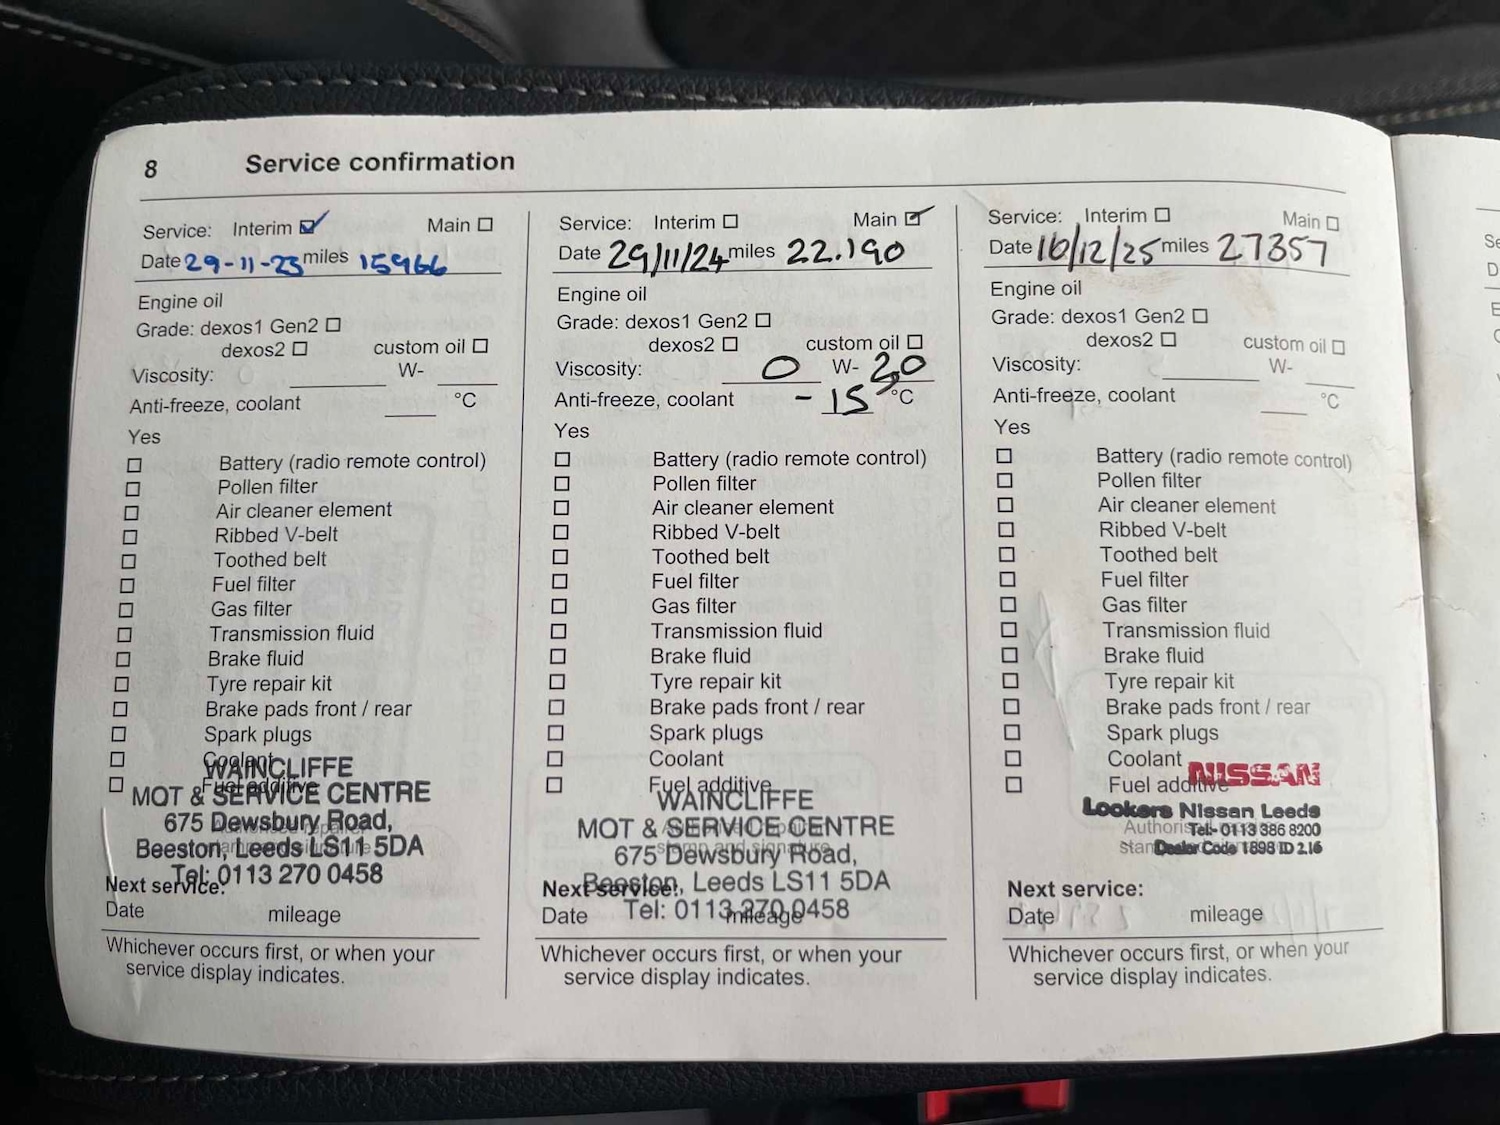 8 Service confirmation
Service: Interim Main
Date 29-11-23 miles 15966
Engine oil
Grade: dexos1 Gen2
dexos2 custom oil
Viscosity: W-
Anti-freeze, coolant °C
Yes
Battery (radio remote control)
Pollen filter
Air cleaner element
Ribbed V-belt
Toothed belt
Fuel filter
Gas filter
Transmission fluid
Brake fluid
Tyre repair kit
Brake pads front / rear
Spark plugs
Coolant
Fuel additive
WAINCLIFFE
MOT & SERVICE CENTRE
675 Dewsbury Road,
Beeston, Leeds LS11 5DA
Tel: 0113 270 0458
Next service:
Date mileage
Whichever occurs first, or when your
service display indicates.
Service: Interim Main
Date 29/11/24 miles 22.190
Engine oil
Grade: dexos1 Gen2
dexos2 custom oil
Viscosity: 0 W- 20
Anti-freeze, coolant -15 °C
Yes
Battery (radio remote control)
Pollen filter
Air cleaner element
Ribbed V-belt
Toothed belt
Fuel filter
Gas filter
Transmission fluid
Brake fluid
Tyre repair kit
Brake pads front / rear
Spark plugs
Coolant
Fuel additive
WAINCLIFFE
MOT & SERVICE CENTRE
675 Dewsbury Road,
Beeston, Leeds LS11 5DA
Tel: 0113 270 0458
Next service:
Date mileage
Whichever occurs first, or when your
service display indicates.
Service: Interim Main
Date 10/12/25 miles 27357
Engine oil
Grade: dexos1 Gen2
dexos2 custom oil
Viscosity: W-
Anti-freeze, coolant °C
Yes
Battery (radio remote control)
Pollen filter
Air cleaner element
Ribbed V-belt
Toothed belt
Fuel filter
Gas filter
Transmission fluid
Brake fluid
Tyre repair kit
Brake pads front / rear
Spark plugs
Coolant
Fuel additive
NISSAN
Lookers Nissan Leeds
Tel:- 0113 386 8200
Dealer Code 1898 ID 2.16
Next service:
Date mileage
Whichever occurs first, or when your
service display indicates.